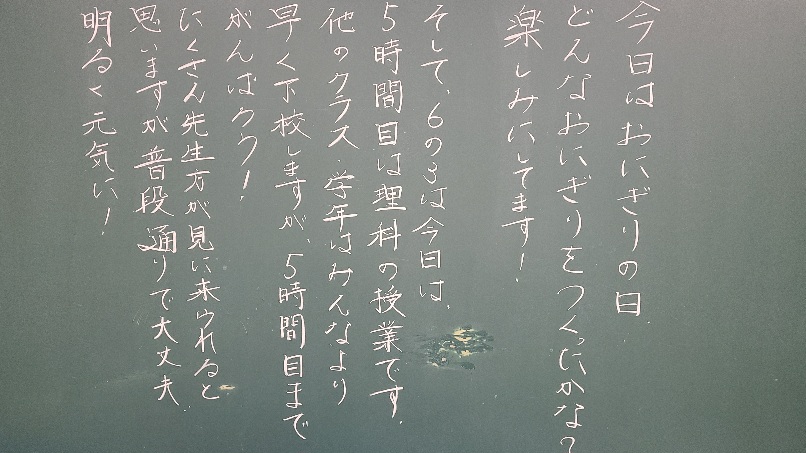 今日はおにぎりの日.
どんなおにぎりをつくったかな?
楽しみにしてます!
そして、6の3は今日は、
5時間目は理科の授業です.
他のクラス・学年はみんなより
早く下校しますが、5時間目まで
がんばろう!
たくさん先生方が見に来られると
思いますが普段通りで大丈夫
明るく元気に!